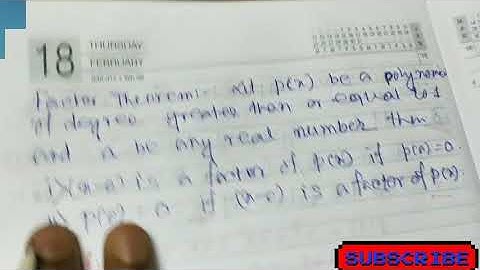 18 THURSDAY
FEBRUARY
Factor Theorem:- Let p(x) be a polynomial
of degree greater than or equal to 1
and a be any real number then
i) (x-a) is a factor of p(x) if p(a)=0.
ii) p(a) = 0 if (x-a) is a factor of p(x).
SUBSCRIBE